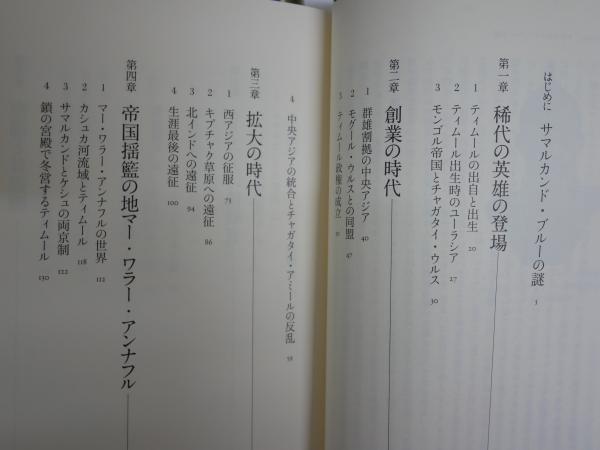 はじめに サマルカンド・ブルーの謎 3
第一章 稀代の英雄の登場
1 ティムールの出自と出生 20
2 ティムール出生時のユーラシア 27
3 モンゴル帝国とチャガタイ・ウルス 30
第二章 創業の時代
1 群雄割拠の中央アジア 40
2 モグール・ウルスとの同盟 47
3 ティムール政権の成立
4 中央アジアの統合とチャガタイ・アミールの反乱 58
第三章 拡大の時代
1 西アジアの征服 73
2 キプチャク草原への遠征 86
3 北インドへの遠征 94
4 生涯最後の遠征 100
第四章 帝国揺籃の地マー・ワラー・アンナフル
1 マー・ワラー・アンナフルの世界 112
2 カシュカ河流域とティムール 118
3 サマルカンドとケシュの両京制 122
4 鎖の宮殿で冬営するティムール 130